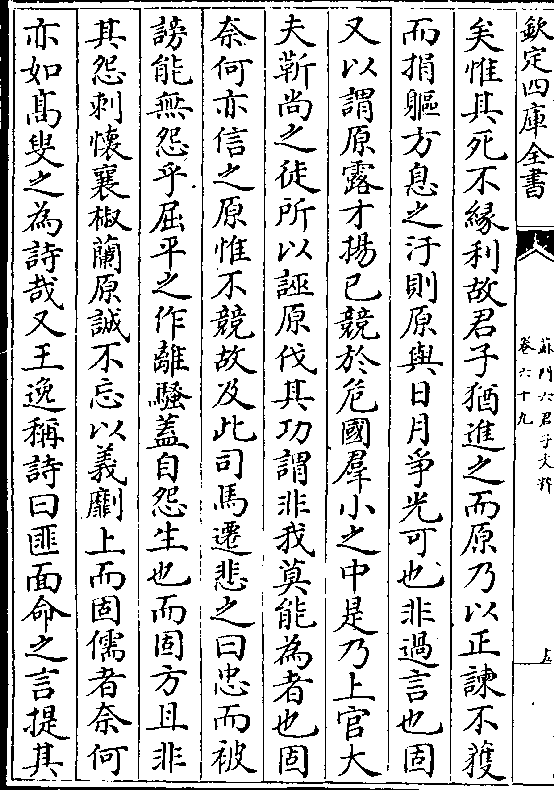 欽定四庫全書
蘇門六君子文粹
卷六十九
矣惟其死不緣利故君子猶進之而原乃以正諫不獲
而捐軀方息之汙則原與日月爭光可也非過言也固
又以謂原露才揚己競於危國羣小之中是乃上官大
夫靳尚之徒所以誣原伐其功謂非我莫能為者也固
奈何亦信之原惟不競故及此司馬遷悲之曰忠而被
謗能無怨乎屈平之作離騷蓋自怨生也而固方且非
其怨刺懷襄椒蘭原誠不忘以義劘上而固儒者奈何
亦如高叟之為詩哉又王逸稱詩曰匪面命之言提其